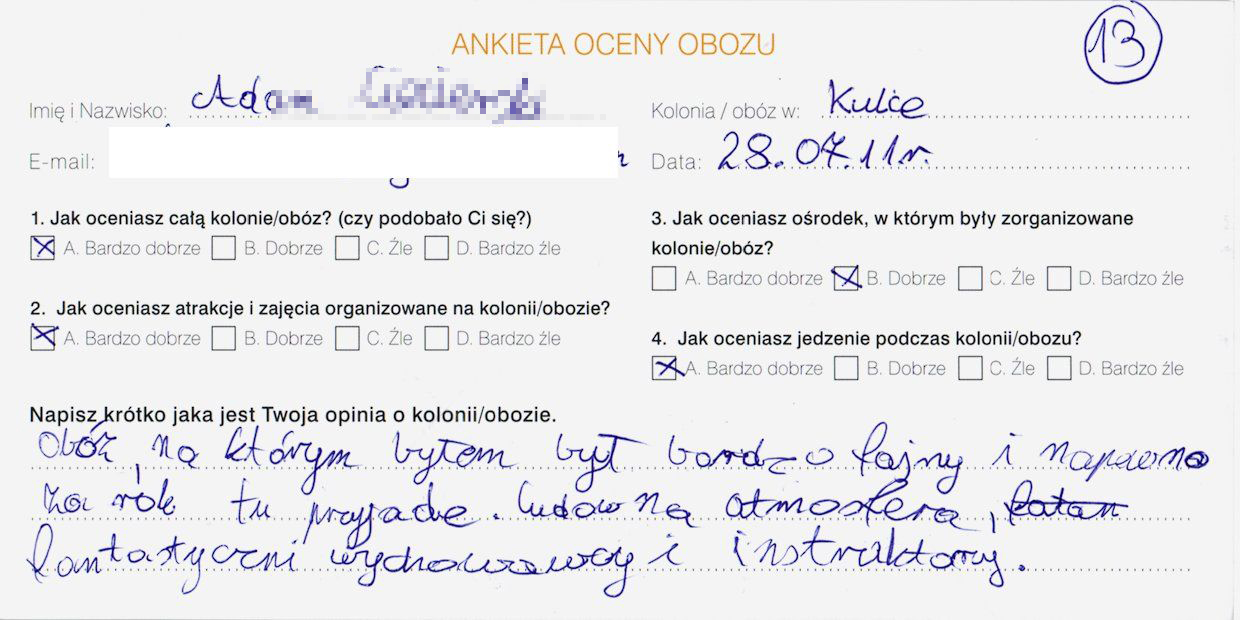 ANKIETA OCENY OBOZU
13
Imię i Nazwisko: Adam
Kolonia / obóz w: Kulce
E-mail:
Data: 28.07.11r.
1. Jak oceniasz całą kolonie/obóz? (czy podobało Ci się?)
A. Bardzo dobrze B. Dobrze C. Źle D. Bardzo źle
2. Jak oceniasz atrakcje i zajęcia organizowane na kolonii/obozie?
A. Bardzo dobrze B. Dobrze C. Źle D. Bardzo źle
3. Jak oceniasz ośrodek, w którym były zorganizowane
kolonie/obóz?
A. Bardzo dobrze B. Dobrze C. Źle D. Bardzo źle
4. Jak oceniasz jedzenie podczas kolonii/obozu?
A. Bardzo dobrze B. Dobrze C. Źle D. Bardzo źle
Napisz krótko jaka jest Twoja opinia o kolonii/obozie.
Obóz, na którym byłem był bardzo fajny i napewno
za rok tu przyjade. Cudowna atmosfera,
fantastyczni wychowawcy i instruktorzy.